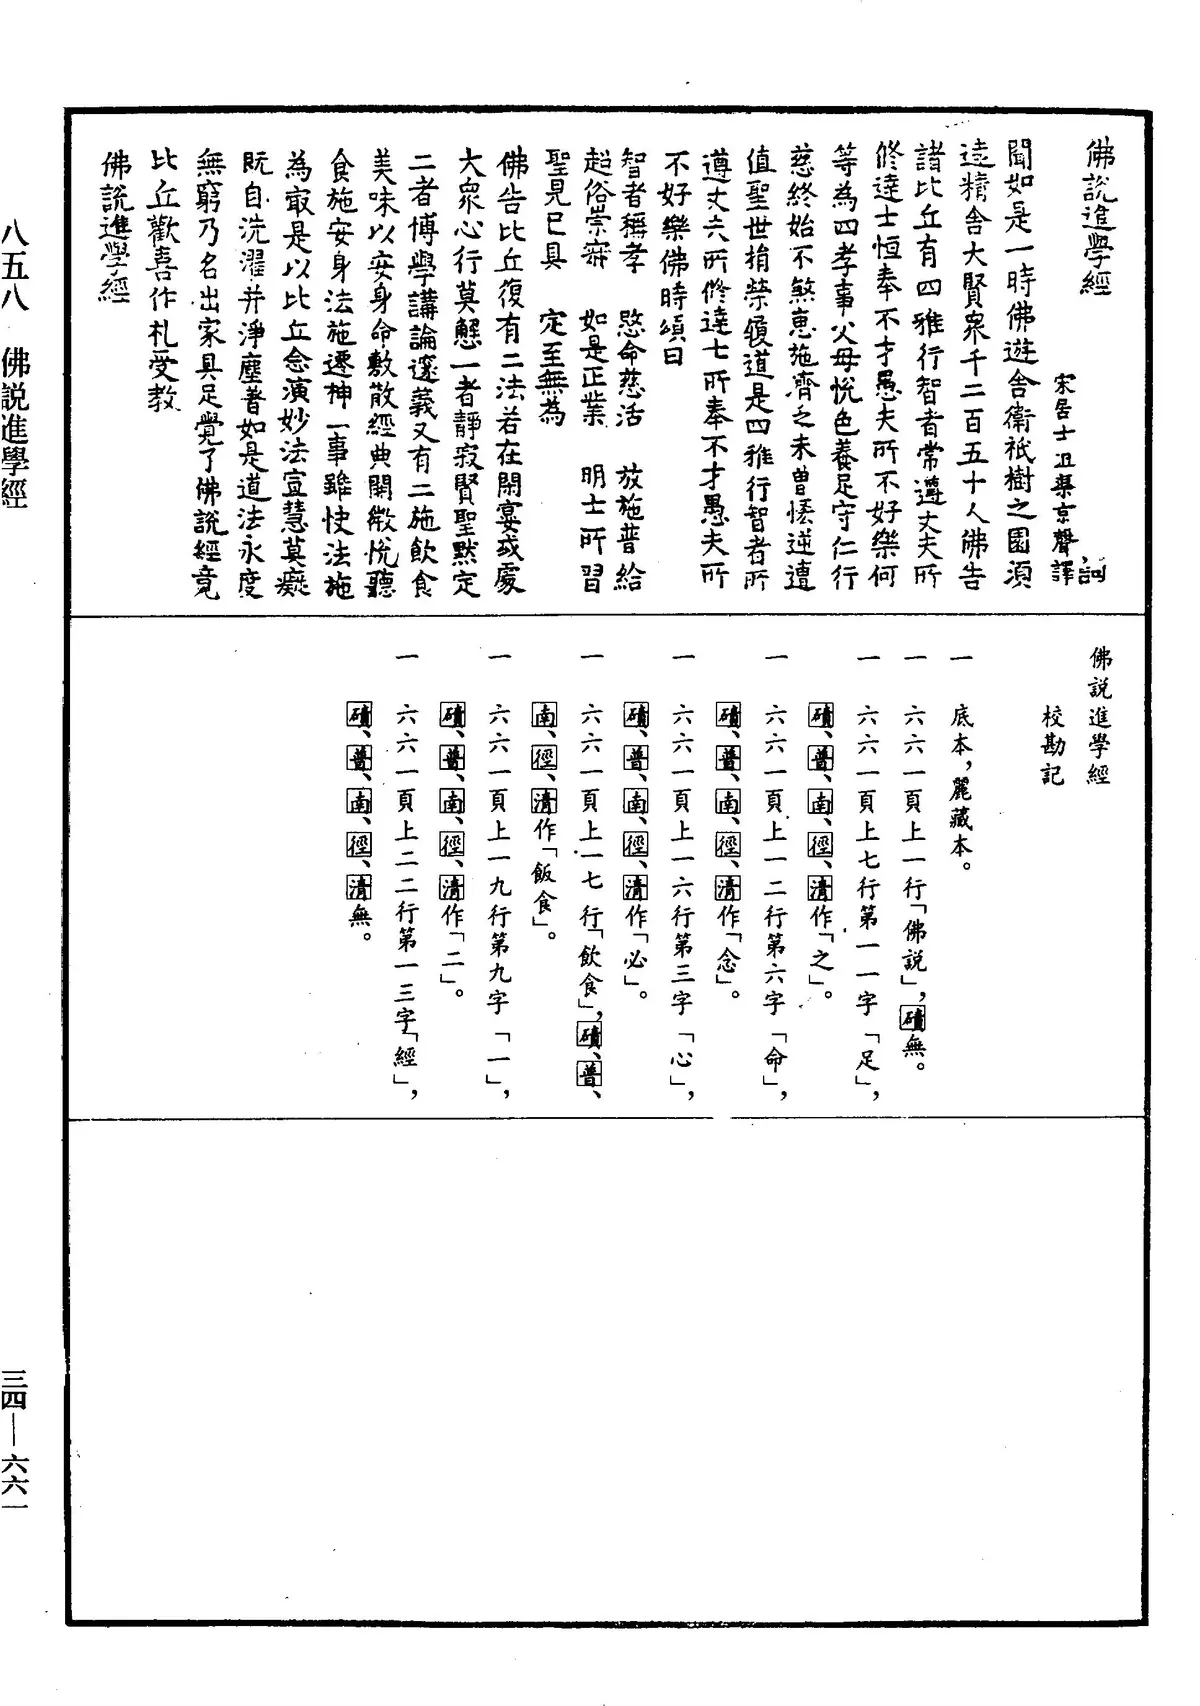 佛說進學經
訶
宋居士沮渠京聲譯
聞如是一時佛遊舍衛祇樹之園須
達精舍大賢衆千二百五十人佛告
諸比丘有四雅行智者常遵丈夫所
修達士恒奉不才愚夫所不好樂何
等為四孝事父母悅色養足守仁行
慈終始不煞惠施濟之未曾慳逆遭
值聖世捐榮履道是四雅行智者所
遵丈夫所修達士所奉不才愚夫所
不好樂佛時頌曰
智者稱孝 愍命慈活 放施普給
超俗崇寂 如是正業 明士所習
聖見已具 定至無為
佛告比丘復有二法若在閑宴或處
大衆心行莫懈一者靜寂賢聖默定
二者博學講論邃義又有二施飲食
美味以安身命敷散經典開徹悅聽
食施安身法施遷神一事雖快法施
為㝡是以比丘念演妙法宣慧莫癡
既自洗濯并淨塵曀如是道法永度
無窮乃名出家具足覺了佛說經竟
比丘歡喜作札受教
佛說進學經
佛說進學經
校勘記
一 底本，麗藏本。
一 六六一頁上一行「佛說」，磧無。
一 六六一頁上七行第一一字「足」，
磧、普、南、徑、清作「之」。
一 六六一頁上一二行第六字「命」，
磧、普、南、徑、清作「念」。
一 六六一頁上一六行第三字「心」，
磧、普、南、徑、清作「必」。
一 六六一頁上一七行「飲食」，磧、普、
南、徑、清作「飯食」。
一 六六一頁上一九行第九字「一」，
磧、普、南、徑、清作「二」。
一 六六一頁上二二行第一三字「經」，
磧、普、南、徑、清無。
八五八 佛說進學經
三四—六六一